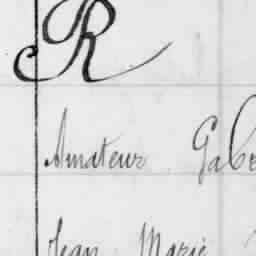 R
Amateur Gab
Jean Marie